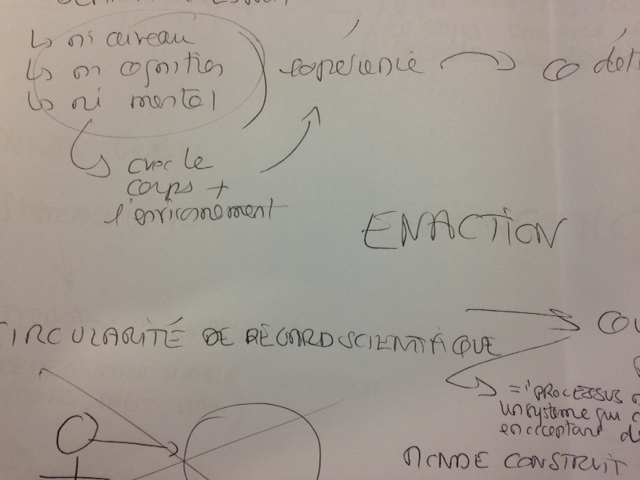 ↳ ni cerveau
↳ ni cognition
↳ ni mental
expérience
co déte
avec le
corps +
l'environnement
ENACTION
CIRCULARITÉ DE REGARD SCIENTIFIQUE
= 'PROCESSUS
un système qui
en acceptant
MONDE CONSTRUIT